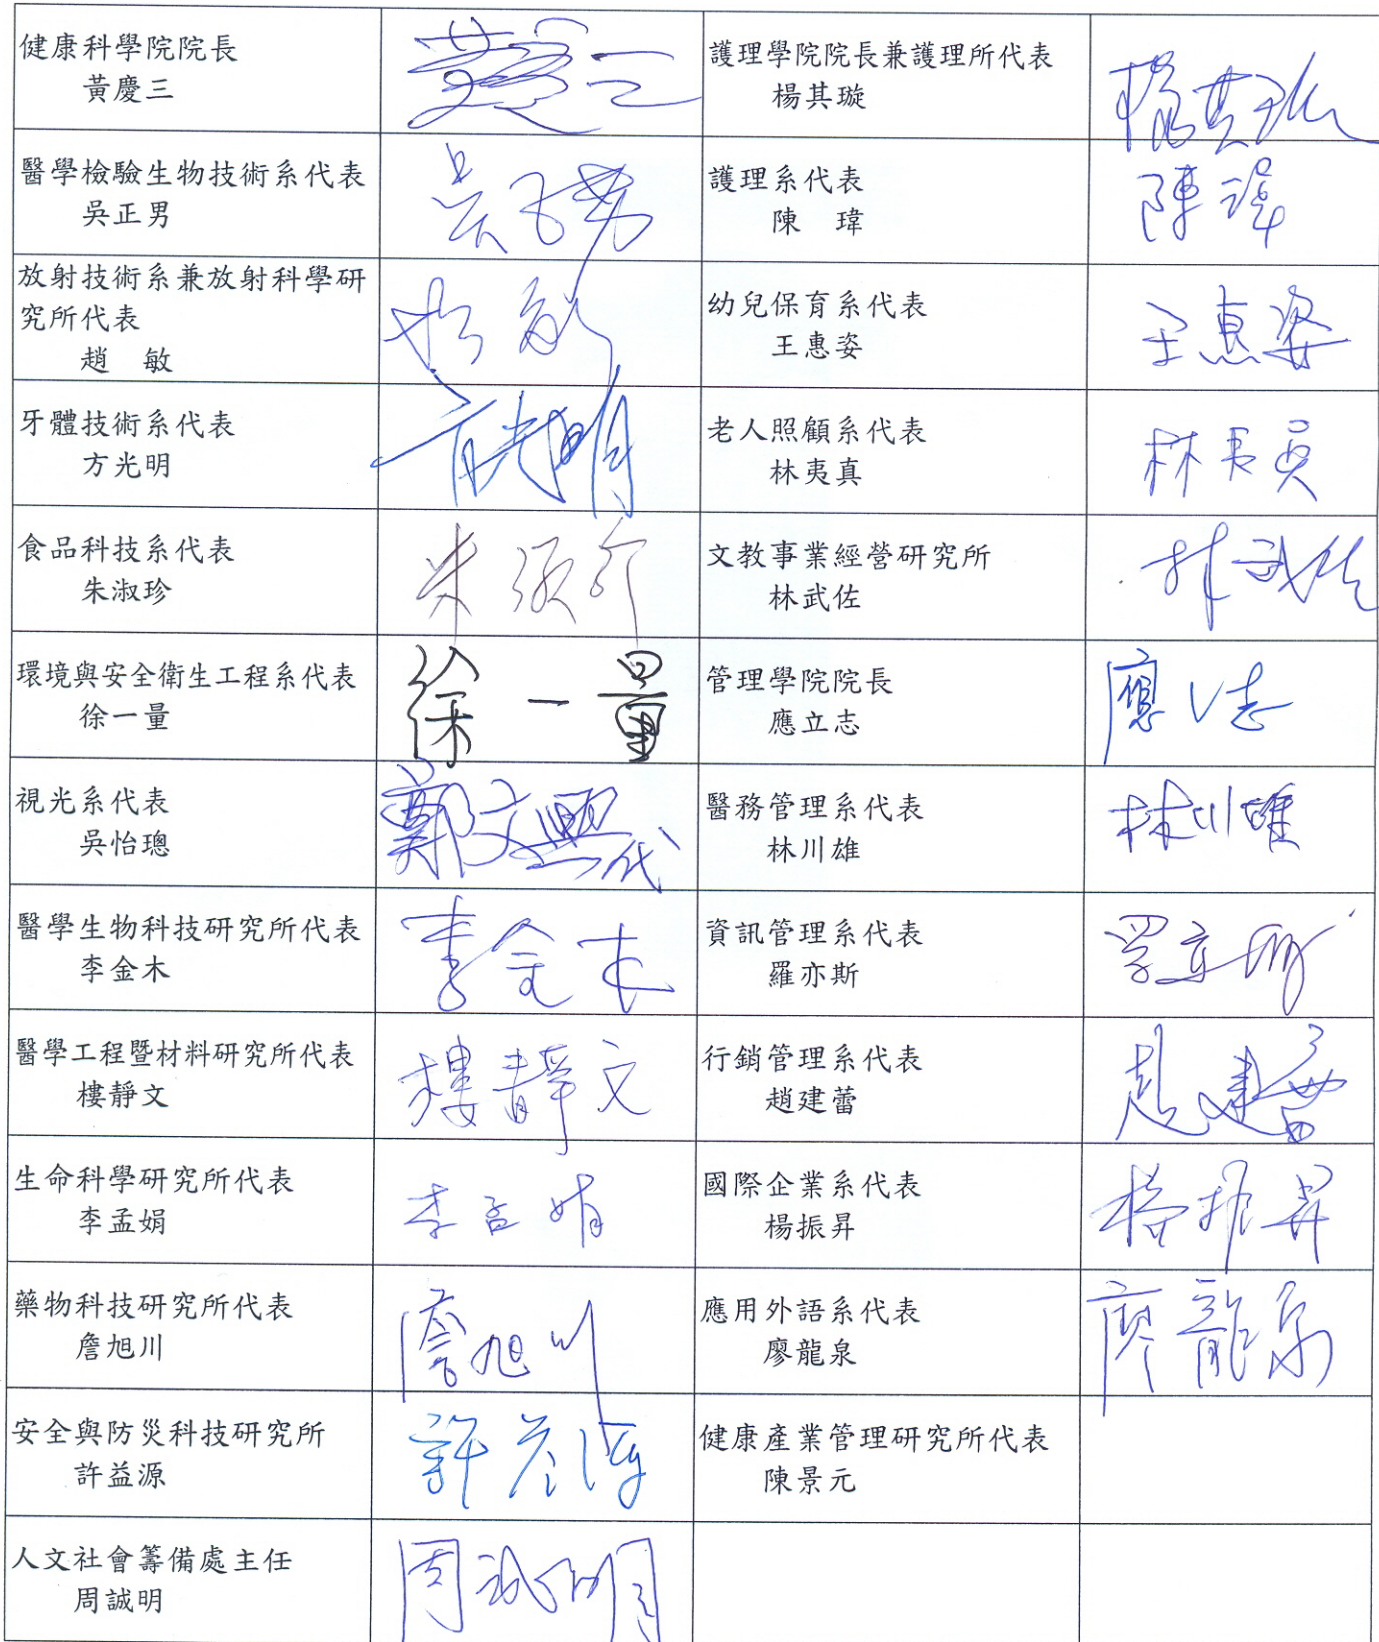 健康科學院院長
黃慶三
黃慶三
護理學院院長兼護理所代表
楊其璇
楊其璇
醫學檢驗生物技術系代表
吳正男
護理系代表
陳 瑋
陳瑋
放射技術系兼放射科學研
究所代表
趙 敏
幼兒保育系代表
王惠姿
王惠姿
牙體技術系代表
方光明
方光明
老人照顧系代表
林夷真
林夷真
食品科技系代表
朱淑珍
朱淑珍
文教事業經營研究所
林武佐
林武佐
環境與安全衛生工程系代表
徐一量
徐一量
管理學院院長
應立志
應立志
視光系代表
吳怡璁
鄭文熙代
醫務管理系代表
林川雄
林川雄
醫學生物科技研究所代表
李金木
李金木
資訊管理系代表
羅亦斯
醫學工程暨材料研究所代表
樓靜文
樓靜文
行銷管理系代表
趙建蕾
趙建蕾
生命科學研究所代表
李孟娟
李孟娟
國際企業系代表
楊振昇
楊振昇
藥物科技研究所代表
詹旭川
詹旭川
應用外語系代表
廖龍泉
廖龍泉
安全與防災科技研究所
許益源
健康產業管理研究所代表
陳景元
人文社會籌備處主任
周誠明
周誠明